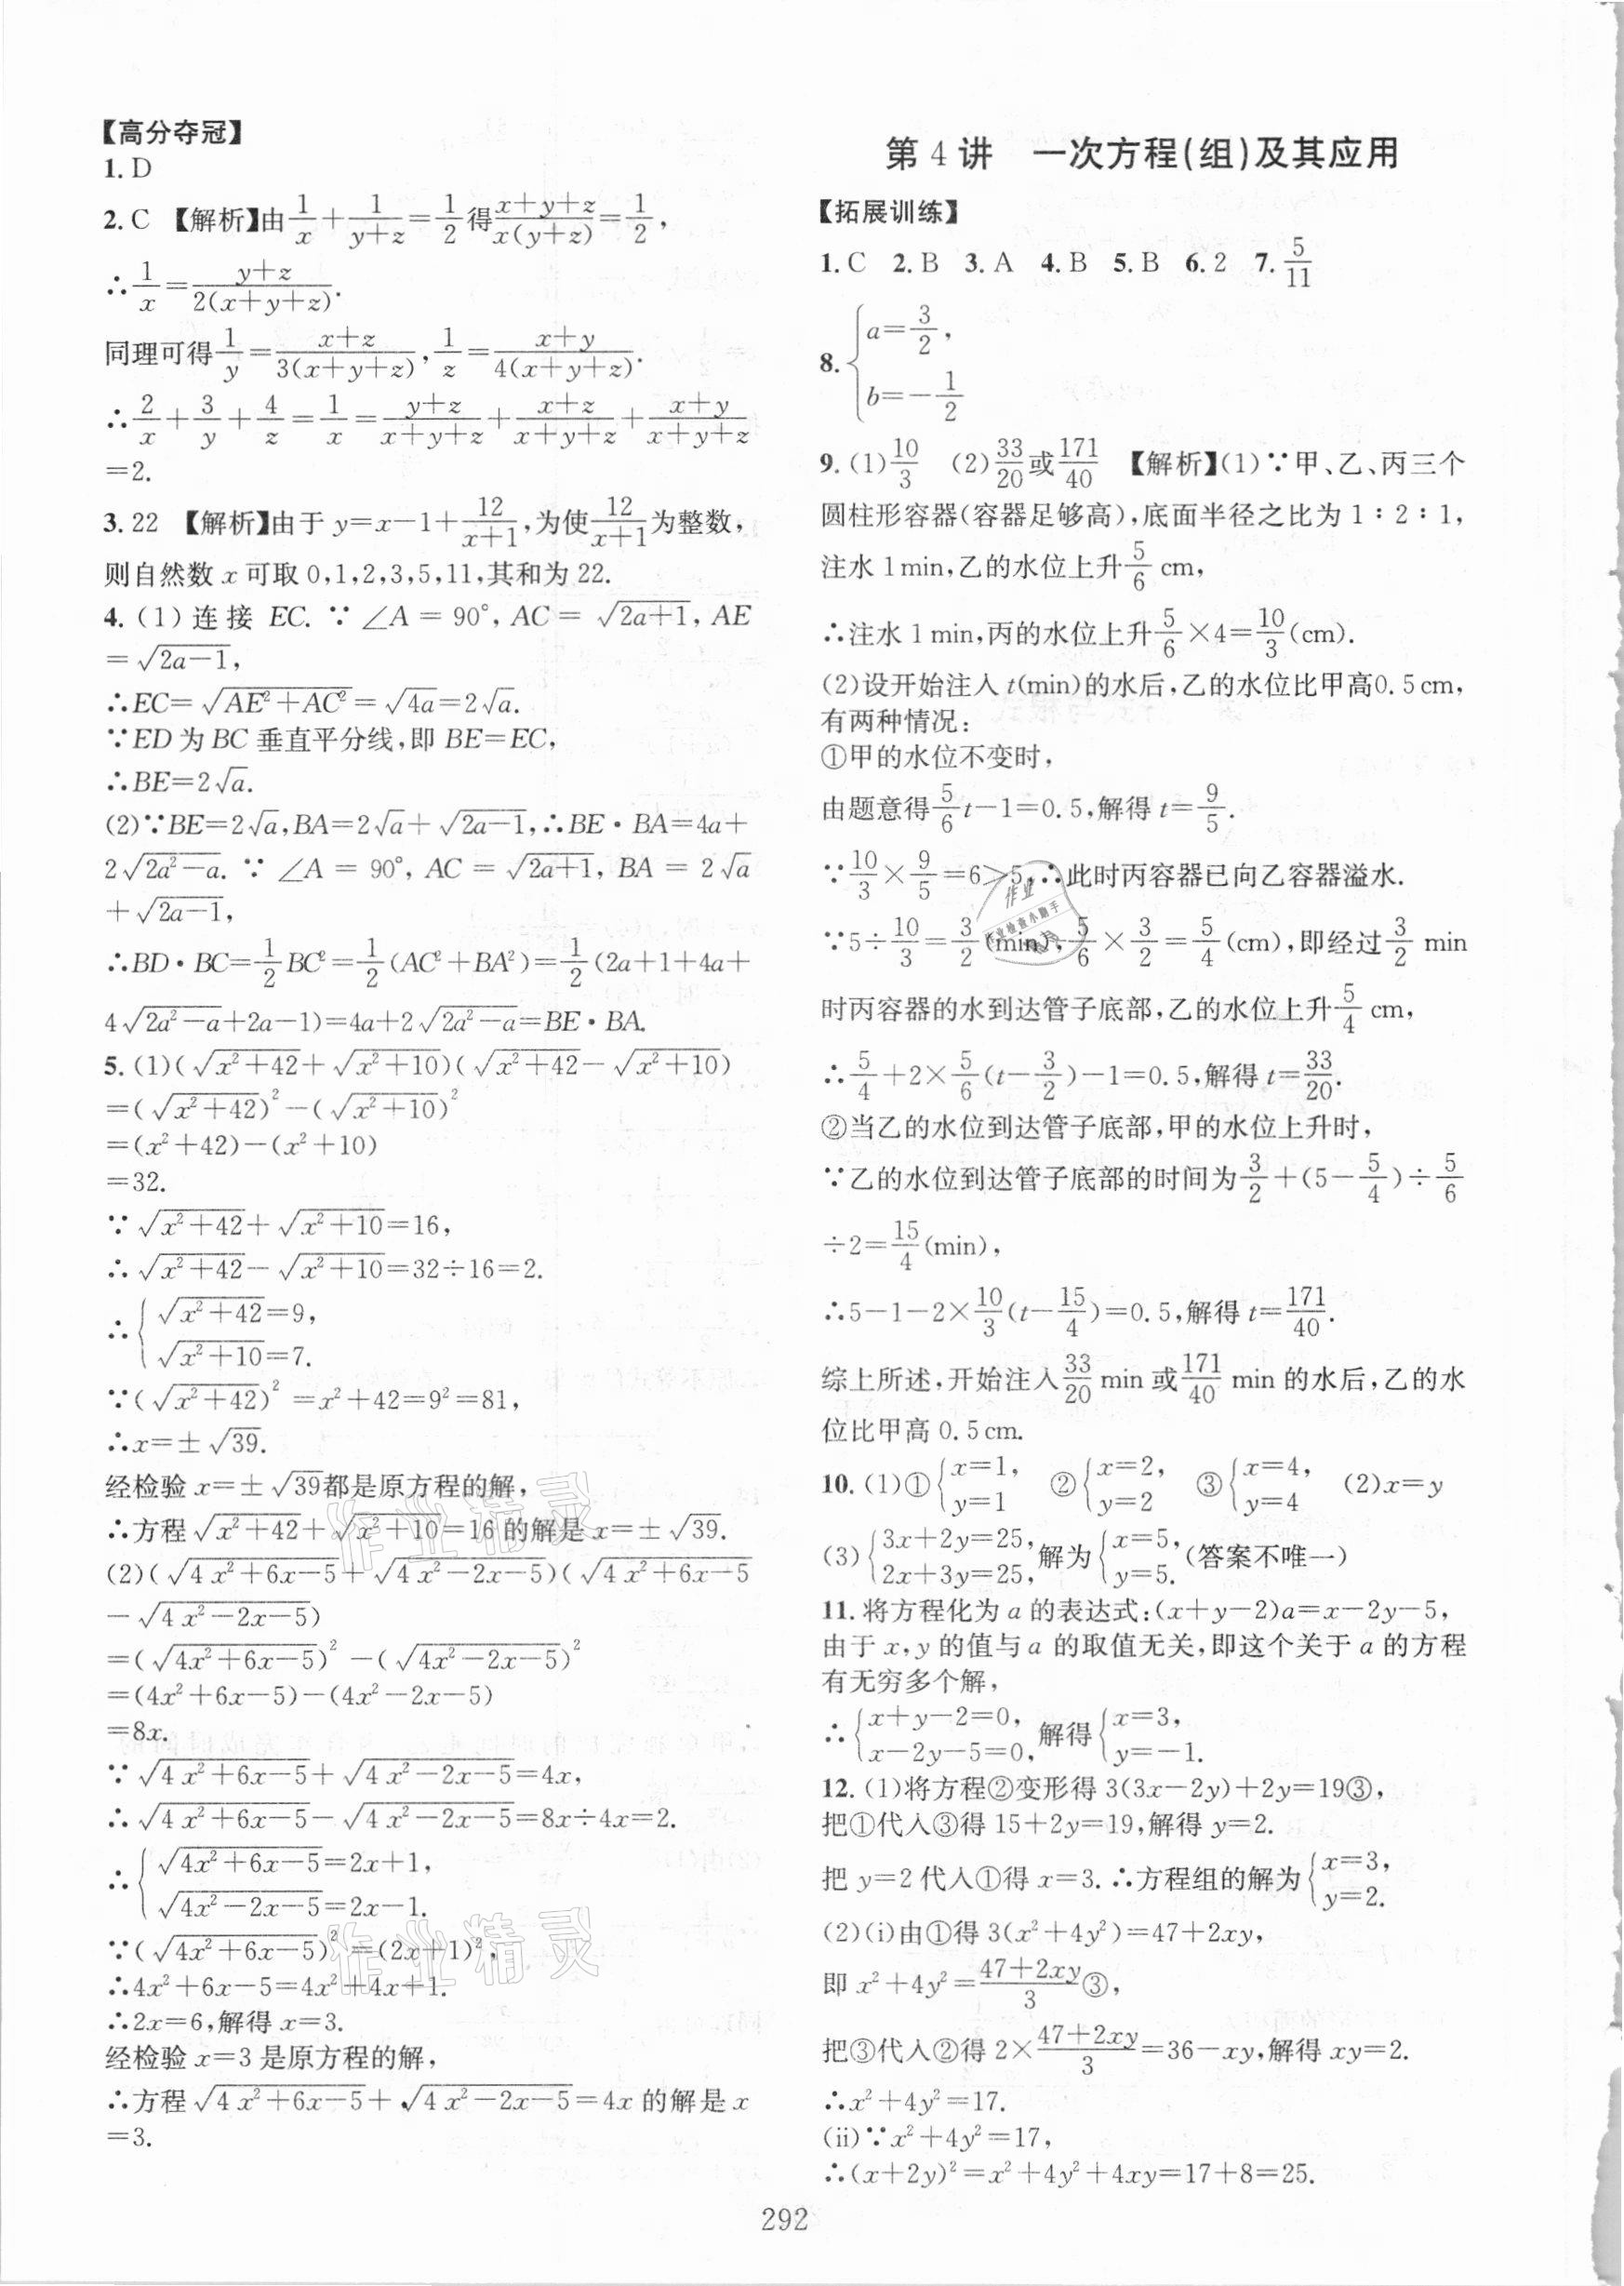 【高分夺冠】
1. D
2. C 【解析】由1/x+1/(y+z)=1/2得(x+y+z)/(x(y+z))=1/2,
∴1/x=(y+z)/(2(x+y+z)).
同理可得1/y=(x+z)/(3(x+y+z)),1/z=(x+y)/(4(x+y+z)).
∴2/x+3/y+4/z=1/x=(y+z)/(x+y+z)+(x+z)/(x+y+z)+(x+y)/(x+y+z)
=2.
3. 22 【解析】由于 y=x-1+12/(x+1),为使12/(x+1)为整数,
则自然数 x 可取 0,1,2,3,5,11,其和为 22.
4. (1) 连接 EC. ∵ ∠A = 90°, AC = √(2a+1), AE
=√(2a-1),
∴EC=√(AE²+AC²)=√(4a)=2√a.
∵ED 为 BC 垂直平分线,即 BE=EC,
∴BE=2√a.
(2)∵BE=2√a,BA=2√a+√(2a-1),∴BE·BA=4a+
2√(2a²-a). ∵ ∠A = 90°, AC = √(2a+1), BA = 2√a
+√(2a-1),
∴BD·BC=1/2BC²=1/2(AC²+BA²)=1/2(2a+1+4a+
4√(2a²-a)+2a-1)=4a+2√(2a²-a)=BE·BA.
5. (1)(√(x²+42)+√(x²+10))(√(x²+42)-√(x²+10))
=(√(x²+42))²-(√(x²+10))²
=(x²+42)-(x²+10)
=32.
∵√(x²+42)+√(x²+10)=16,
∴√(x²+42)-√(x²+10)=32÷16=2.
∴{√(x²+42)=9,
√(x²+10)=7.
∵(√(x²+42))²=x²+42=9²=81,
∴x=±√39.
经检验 x=±√39都是原方程的解,
∴方程√(x²+42)+√(x²+10)=16 的解是 x=±√39.
(2)(√(4x²+6x-5)+√(4x²-2x-5))(√(4x²+6x-5)
-√(4x²-2x-5))
=(√(4x²+6x-5))²-(√(4x²-2x-5))²
=(4x²+6x-5)-(4x²-2x-5)
=8x.
∵√(4x²+6x-5)+√(4x²-2x-5)=4x,
∴√(4x²+6x-5)-√(4x²-2x-5)=8x÷4x=2.
∴{√(4x²+6x-5)=2x+1,
√(4x²-2x-5)=2x-1.
∵(√(4x²+6x-5))²=(2x+1)²,
∴4x²+6x-5=4x²+4x+1.
∴2x=6,解得 x=3.
经检验 x=3 是原方程的解,
∴方程√(4x²+6x-5)+√(4x²-2x-5)=4x 的解是 x
=3.
第 4 讲 一次方程(组)及其应用
【拓展训练】
1. C 2. B 3. A 4. B 5. B 6. 2 7. 5/11
8. {a=3/2,
b=-1/2
9. (1)10/3 (2)33/20或171/40 【解析】(1)∵甲、乙、丙三个
圆柱形容器(容器足够高),底面半径之比为 1∶2∶1,
注水 1 min,乙的水位上升5/6 cm,
∴注水 1 min,丙的水位上升5/6×4=10/3(cm).
(2)设开始注入 t(min)的水后,乙的水位比甲高0.5 cm,
有两种情况:
①甲的水位不变时,
由题意得5/6t-1=0.5,解得 t=9/5.
∵10/3×9/5=6>5,∴此时丙容器已向乙容器溢水.
∵5÷10/3=3/2(min),5/6×3/2=5/4(cm),即经过3/2 min
时丙容器的水到达管子底部,乙的水位上升5/4 cm,
∴5/4+2×5/6(t-3/2)-1=0.5,解得 t=33/20.
②当乙的水位到达管子底部,甲的水位上升时,
∵乙的水位到达管子底部的时间为3/2+(5-5/4)÷5/6
÷2=15/4(min),
∴5-1-2×10/3(t-15/4)=0.5,解得 t=171/40.
综上所述,开始注入33/20 min 或171/40 min 的水后,乙的水
位比甲高 0.5 cm.
10. (1)①{x=1, y=1 ②{x=2, y=2 ③{x=4, y=4 (2)x=y
(3){3x+2y=25, 2x+3y=25,解为{x=5, y=5.(答案不唯一)
11. 将方程化为 a 的表达式:(x+y-2)a=x-2y-5,
由于 x,y 的值与 a 的取值无关,即这个关于 a 的方程
有无穷多个解,
∴{x+y-2=0, x-2y-5=0,解得{x=3, y=-1.
12. (1)将方程②变形得 3(3x-2y)+2y=19③,
把①代入③得 15+2y=19,解得 y=2.
把 y=2 代入①得 x=3. ∴方程组的解为{x=3, y=2.
(2)(i)由①得 3(x²+4y²)=47+2xy,
即 x²+4y²=(47+2xy)/3③,
把③代入②得 2×(47+2xy)/3=36-xy,解得 xy=2.
∴x²+4y²=17.
(ii)∵x²+4y²=17,
∴(x+2y)²=x²+4y²+4xy=17+8=25.
292
作业精灵
作业精灵
作业
作业检查小助手